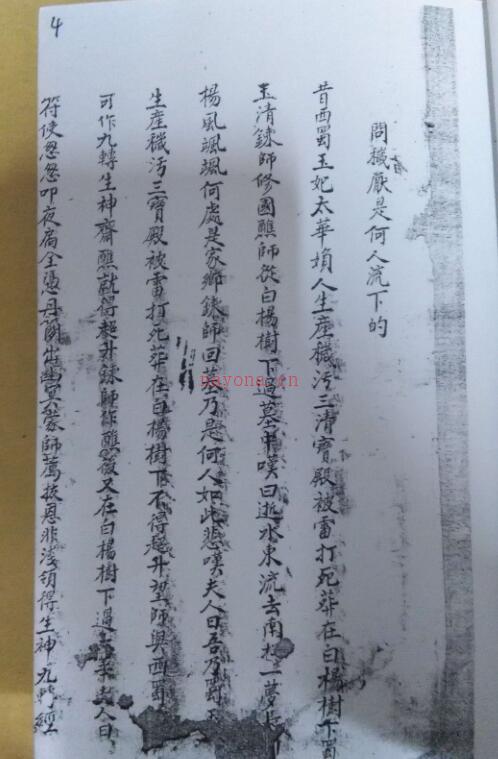 4
問穢厭是何人流下的
昔西蜀玉妃太華損人生產穢污三清寶殿被雷打死葬在白楊樹下蜀
玉清鍊師修國醮師從白楊樹下過墓中嘆曰逝水東流去南柯一夢長
楊風颯颯何處是家鄉鍊師曰墓乃是何人如此悲嘆夫人曰吾乃蜀
生產穢污三寶殿被雷打死葬在白楊樹下不得超升望師與西蜀
可作九轉生神齋醮就得超升鍊師作醮後又在白楊樹下過夫人曰
符使忽忽叩夜扃全憑丹闕出幽冥蒙師薦拔恩非淺領得生神九轉經
nayona.cn